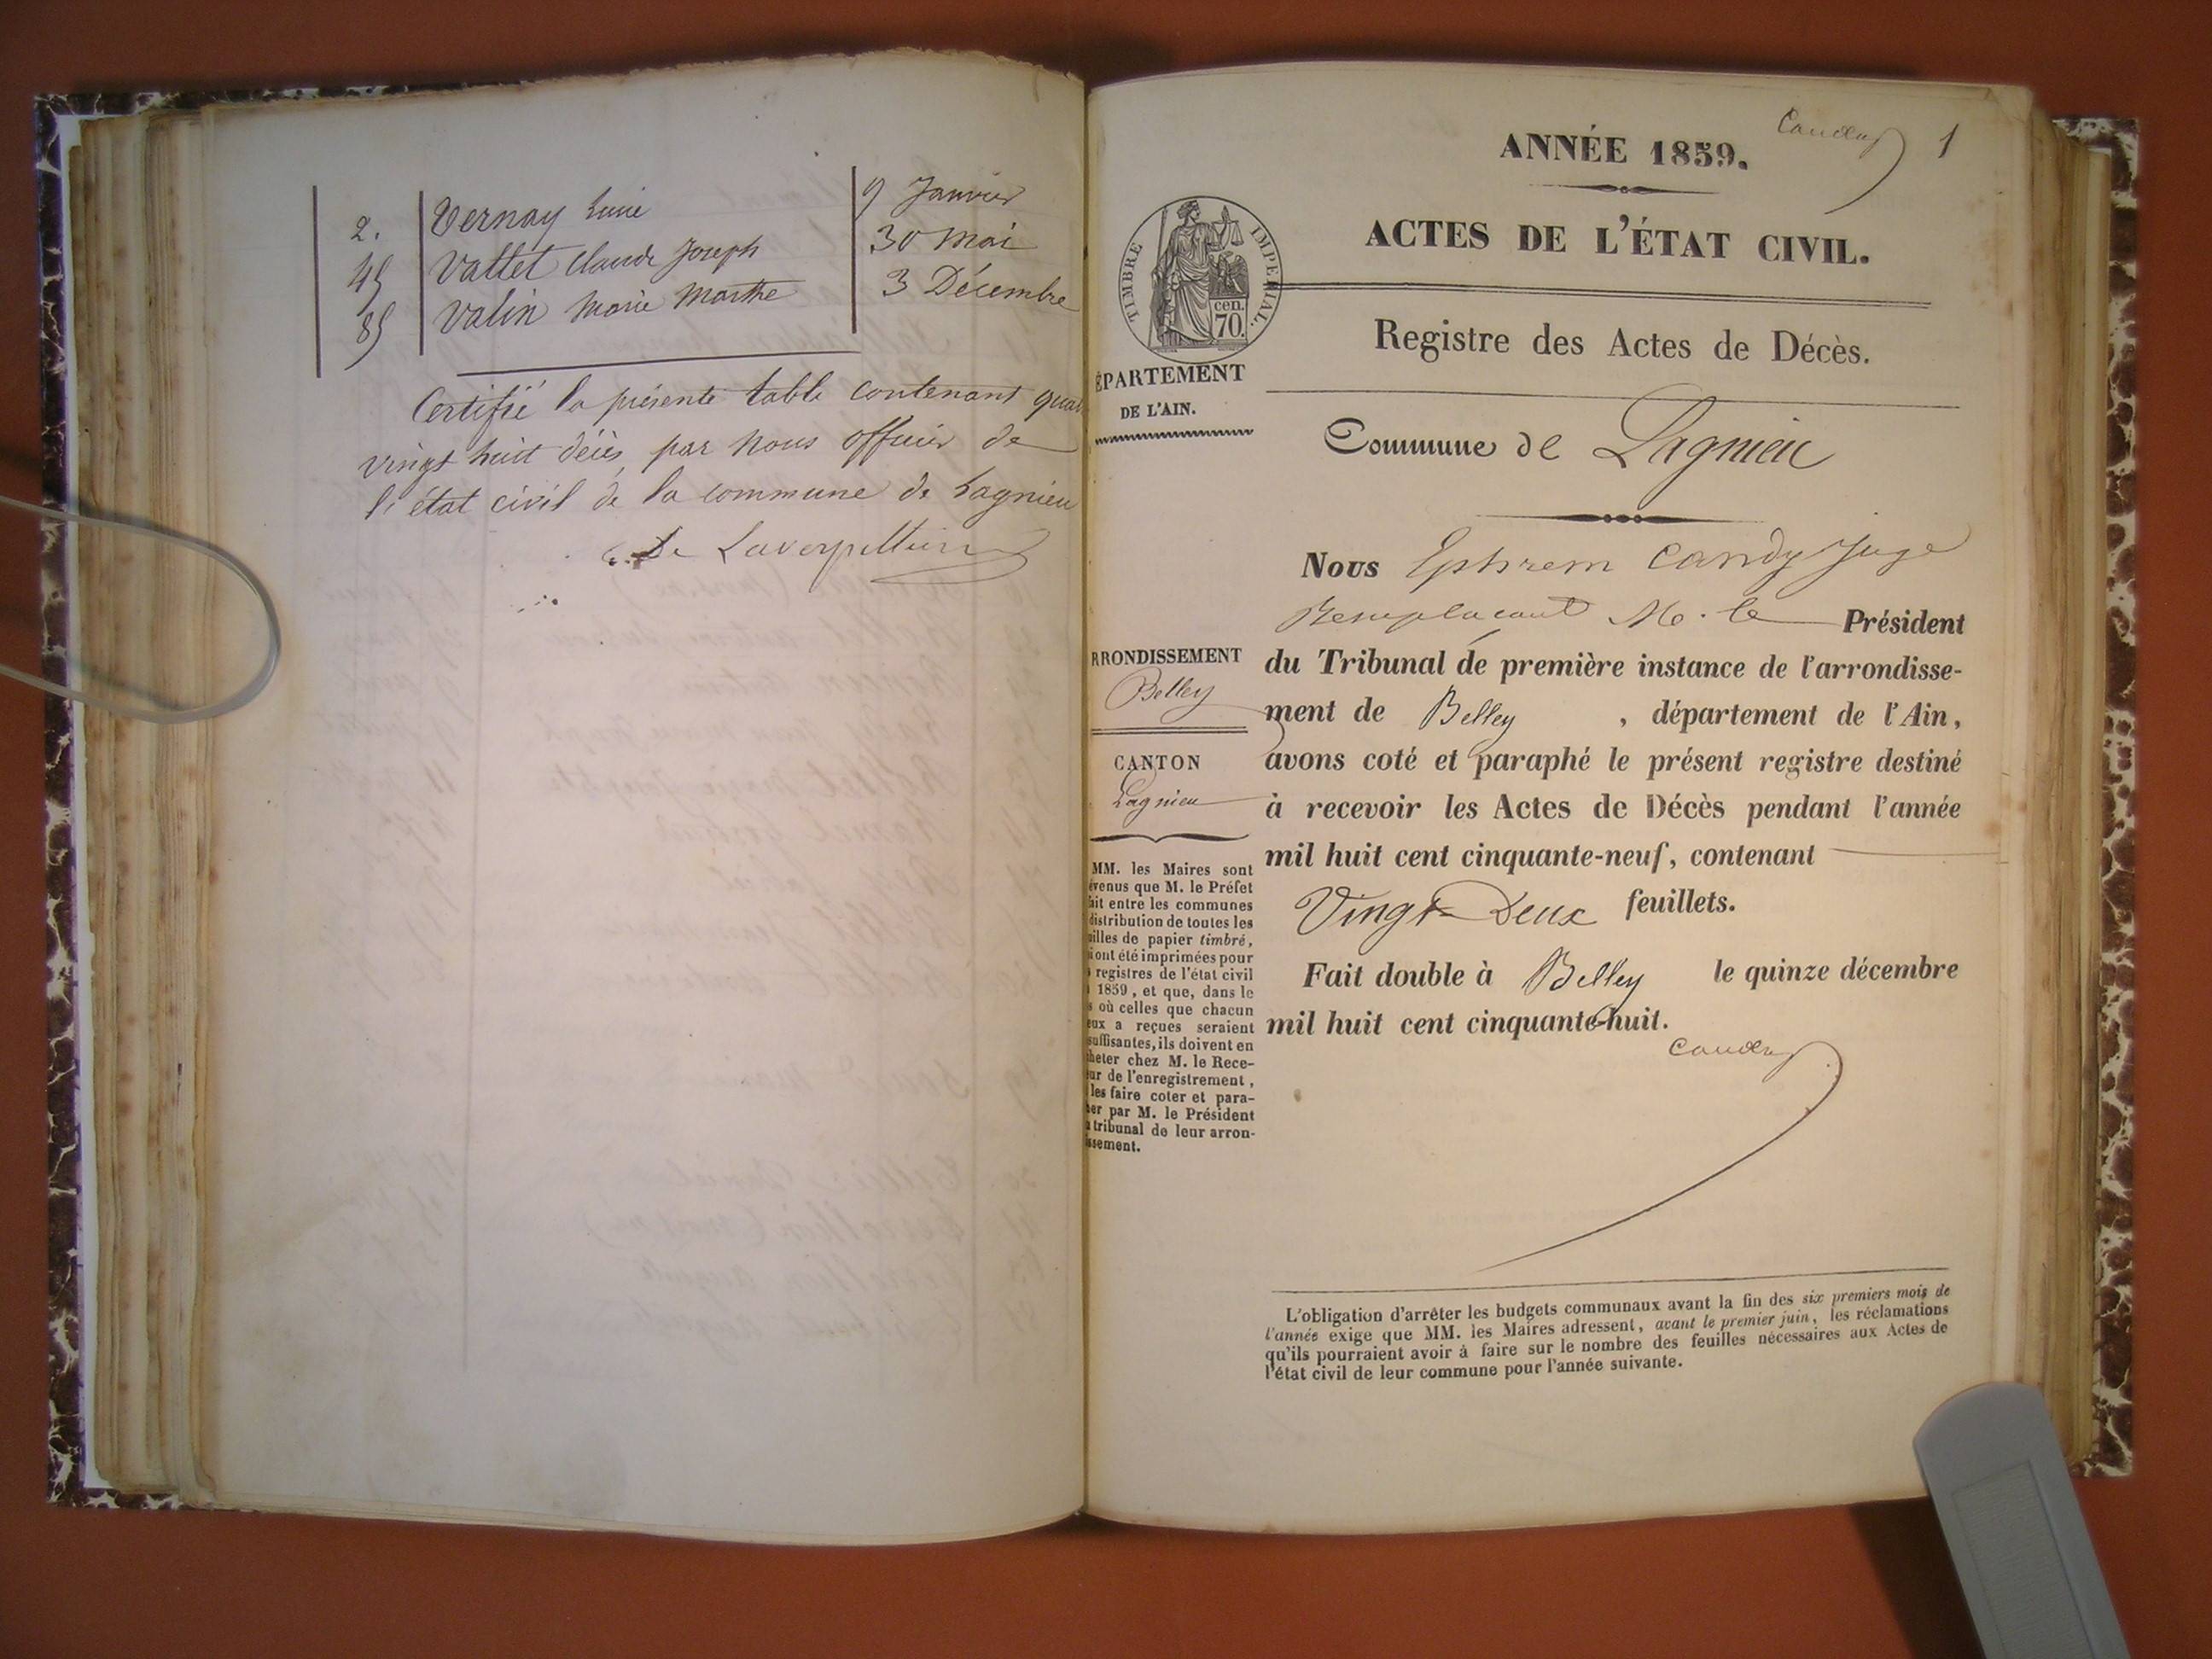 2. Vernay 9 Janvier
45 Vallet Claude Joseph 30 Mai
85 Valin Marie Marthe 3 Décembre
Certifié la présente table contenant quat
vingt huit décès, par nous officier de
l'état civil de la commune de Lagnieu
De Laverpillière
Candy 1
ANNÉE 1859.
ACTES DE L'ÉTAT CIVIL.
TIMBRE IMPERIAL.
cen.
70.
Registre des Actes de Décès.
ÉPARTEMENT
DE L'AIN.
Commune de Lagnieu
Nous Ephrem Candy Juge
Remplaçant M. le Président
du Tribunal de première instance de l'arrondisse-
ment de Belley , département de l'Ain,
avons coté et paraphé le présent registre destiné
à recevoir les Actes de Décès pendant l'année
mil huit cent cinquante-neuf, contenant
Vingt-Deux feuillets.
Fait double à Belley le quinze décembre
mil huit cent cinquante-huit.
Candy
RRONDISSEMENT
Belley
CANTON
Lagnieu
MM. les Maires sont
évenus que M. le Préfet
ait entre les communes
distribution de toutes les
uilles de papier timbré,
i ont été imprimées pour
s registres de l'état civil
1859, et que, dans le
s où celles que chacun
eux a reçues seraient
suffisantes, ils doivent en
heter chez M. le Rece-
ur de l'enregistrement,
les faire coter et para-
er par M. le Président
u tribunal de leur arron-
ssement.
L'obligation d'arrêter les budgets communaux avant la fin des six premiers mois de
l'année exige que MM. les Maires adressent, avant le premier juin, les réclamations
qu'ils pourraient avoir à faire sur le nombre des feuilles nécessaires aux Actes de
l'état civil de leur commune pour l'année suivante.